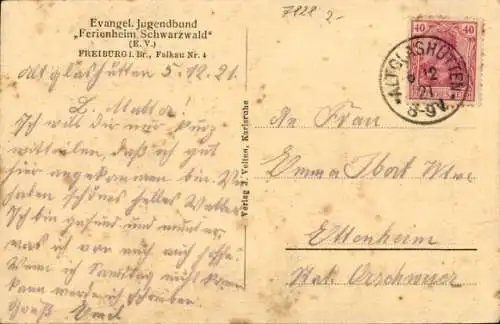 7828 2-
Evangel. Jugendbund
„Ferienheim Schwarzwald"
(E. V.)
FREIBURG i. Br., Falkau Nr. 4
Altglashütten 5.12.21.
L. Mutter!
Ich will dir nur kurz
mitteilen, daß ich gut
hier angekommen bin. Wir
haben schönes helles Wetter.
Ich bin gesund und munter
was ich von euch auch hoffe.
Wenn ich Samstag nicht komm
kann werde ich schreiben.
Gruß Emil
Verlag J. Velten, Karlsruhe
40 40
ALTGLASHÜTTEN
6 12
21
8-9V.
An Frau
Emma Wwe
Ettenheim